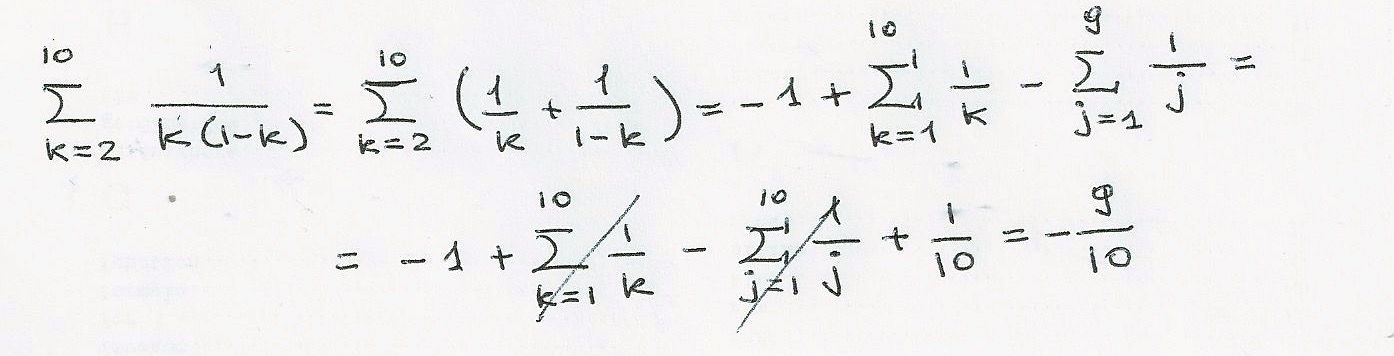 \sum_{k=2}^{10} \frac{1}{k(1-k)} = \sum_{k=2}^{10} \left( \frac{1}{k} + \frac{1}{1-k} \right) = -1 + \sum_{k=1}^{10} \frac{1}{k} - \sum_{j=1}^{9} \frac{1}{j} =
= -1 + \sum_{k=1}^{10} \frac{1}{k} - \sum_{j=1}^{10} \frac{1}{j} + \frac{1}{10} = -\frac{9}{10}